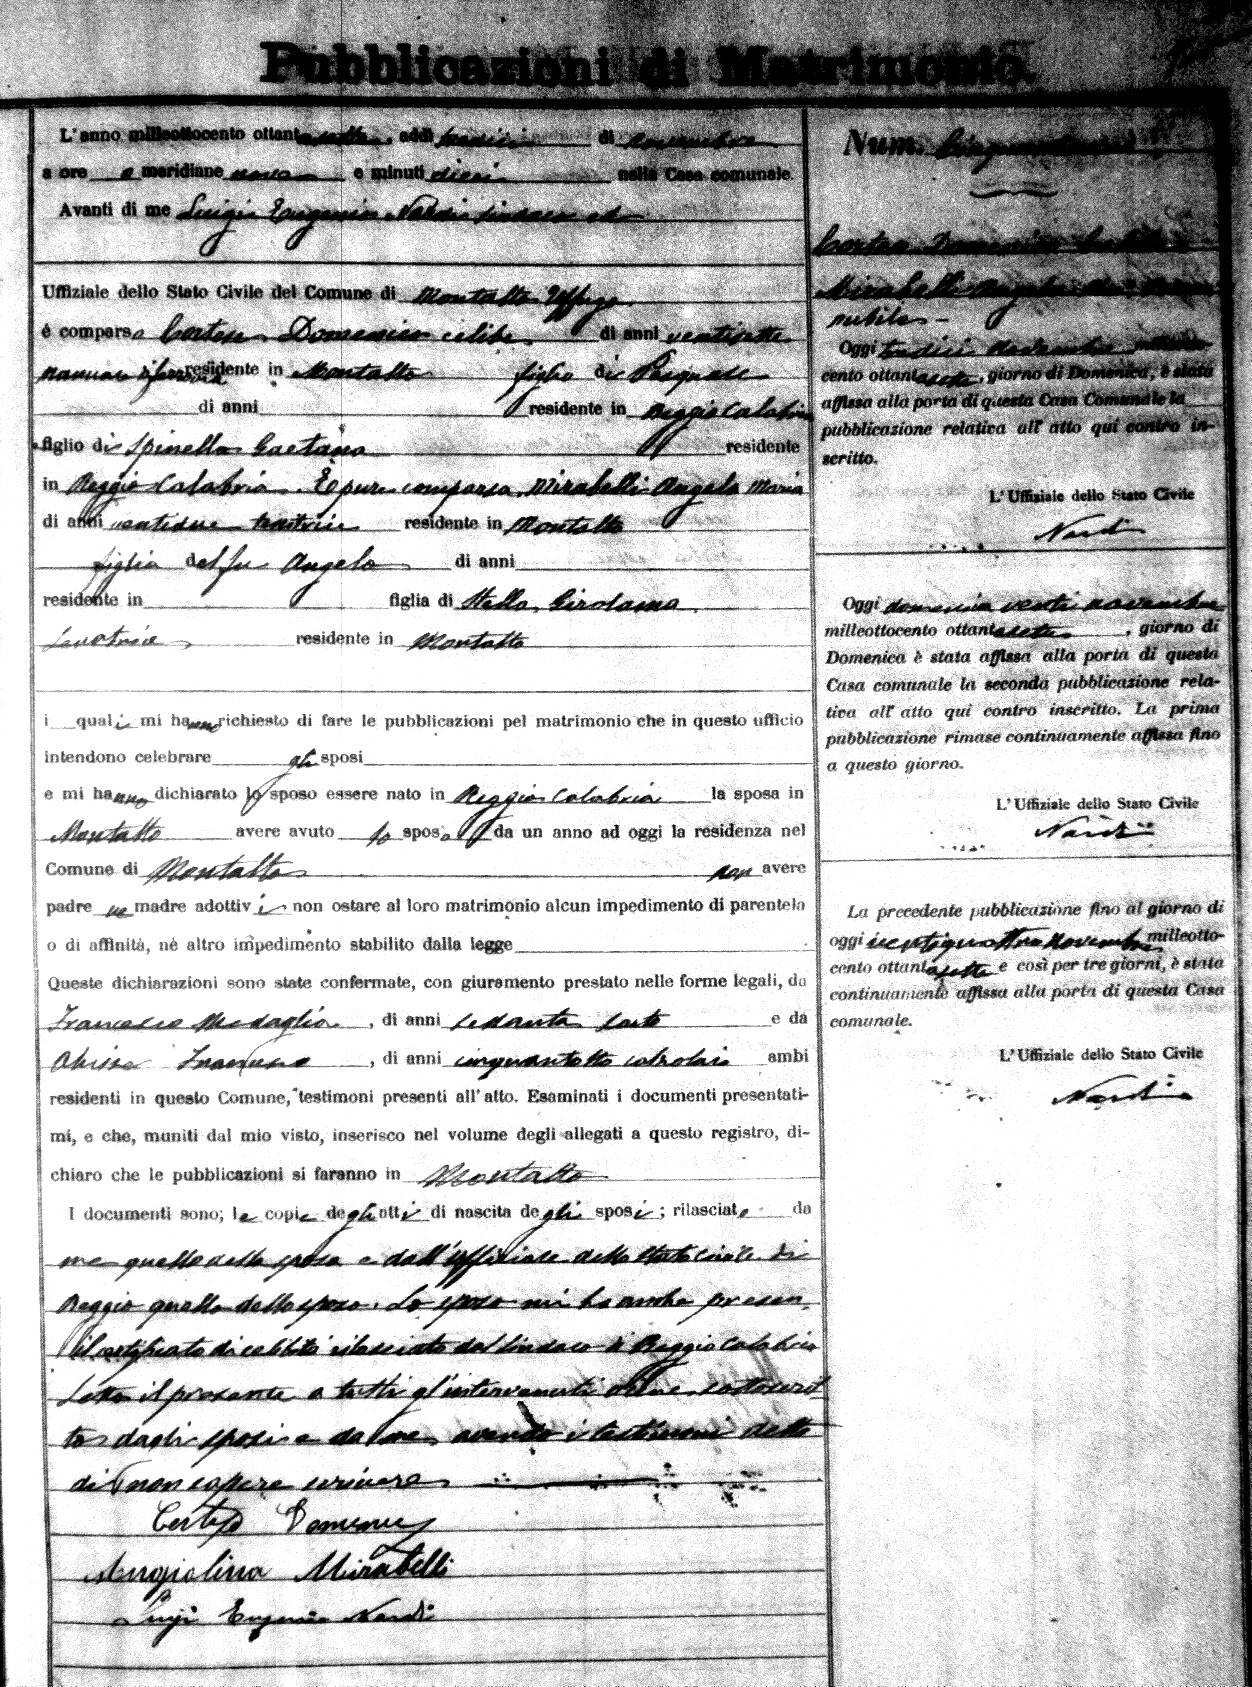 Pubblicazioni di Matrimonio.
L'anno milleottocento ottantasette, addì tredici di novembre
a ore a meridiane nove e minuti dieci nella Casa comunale.
Avanti di me Luigi Eugenio Nardi Sindaco ed
Uffiziale dello Stato Civile del Comune di Montalto Uffugo
è comparso Domenico celibe di anni ventisette
residente in Montalto figlio di Pasquale
di anni residente in Reggio Calabria
figlio di Spinella Gaetana residente
in Reggio Calabria. E pure comparsa, Mirabelli Angela Maria
di anni ventidue residente in Montalto
figlia del fu Angelo di anni
residente in figlia di Stella Girolama
residente in Montalto
i quali mi hanno richiesto di fare le pubblicazioni pel matrimonio che in questo ufficio
intendono celebrare gli sposi
e mi hanno dichiarato lo sposo essere nato in Reggio Calabria la sposa in
Montalto avere avuto lo sposo da un anno ad oggi la residenza nel
Comune di Montalto non avere
padre ne madre adottivi non ostare al loro matrimonio alcun impedimento di parentela
o di affinità, nè altro impedimento stabilito dalla legge
Queste dichiarazioni sono state confermate, con giuramento prestato nelle forme legali, da
Francesco Medaglia, di anni sessanta sarto e da
Francesco, di anni cinquantotto calzolaio ambi
residenti in questo Comune, testimoni presenti all'atto. Esaminati i documenti presentati-
mi, e che, muniti dal mio visto, inserisco nel volume degli allegati a questo registro, di-
chiaro che le pubblicazioni si faranno in Montalto
I documenti sono; le copie degli atti di nascita degli sposi; rilasciate da
me quello della sposa e dall'Uffiziale dello Stato Civile di
Reggio quello dello sposo. Lo sposo mi ha anche presen.
il certificato di celibità rilasciato dal Sindaco di Reggio Calabria
Letto il presente a tutti gl'intervenuti viene sottoscrit
to dagli sposi e da me, avendo i testimoni detto
di non sapere scrivere
Domenico
Angiolina Mirabelli
Luigi Eugenio Nardi
Num.
Domenico celibe
Mirabelli Angela Maria
nubile -
Oggi tredici novembre milleotto-
cento ottantasette, giorno di Domenica, è stata
affissa alla porta di questa Casa Comunale la
pubblicazione relativa all'atto qui contro in-
scritto.
L'Uffiziale dello Stato Civile
Nardi
Oggi domenica venti novembre
milleottocento ottantasette, giorno di
Domenica è stata affissa alla porta di questa
Casa comunale la seconda pubblicazione rela-
tiva all'atto qui contro inscritto. La prima
pubblicazione rimase continuamente affissa fino
a questo giorno.
L'Uffiziale dello Stato Civile
Nardi
La precedente pubblicazione fino al giorno di
oggi ventiquattro novembre milleotto-
cento ottantasette e così per tre giorni, è stata
continuamente affissa alla porta di questa Casa
comunale.
L'Uffiziale dello Stato Civile
Nardi